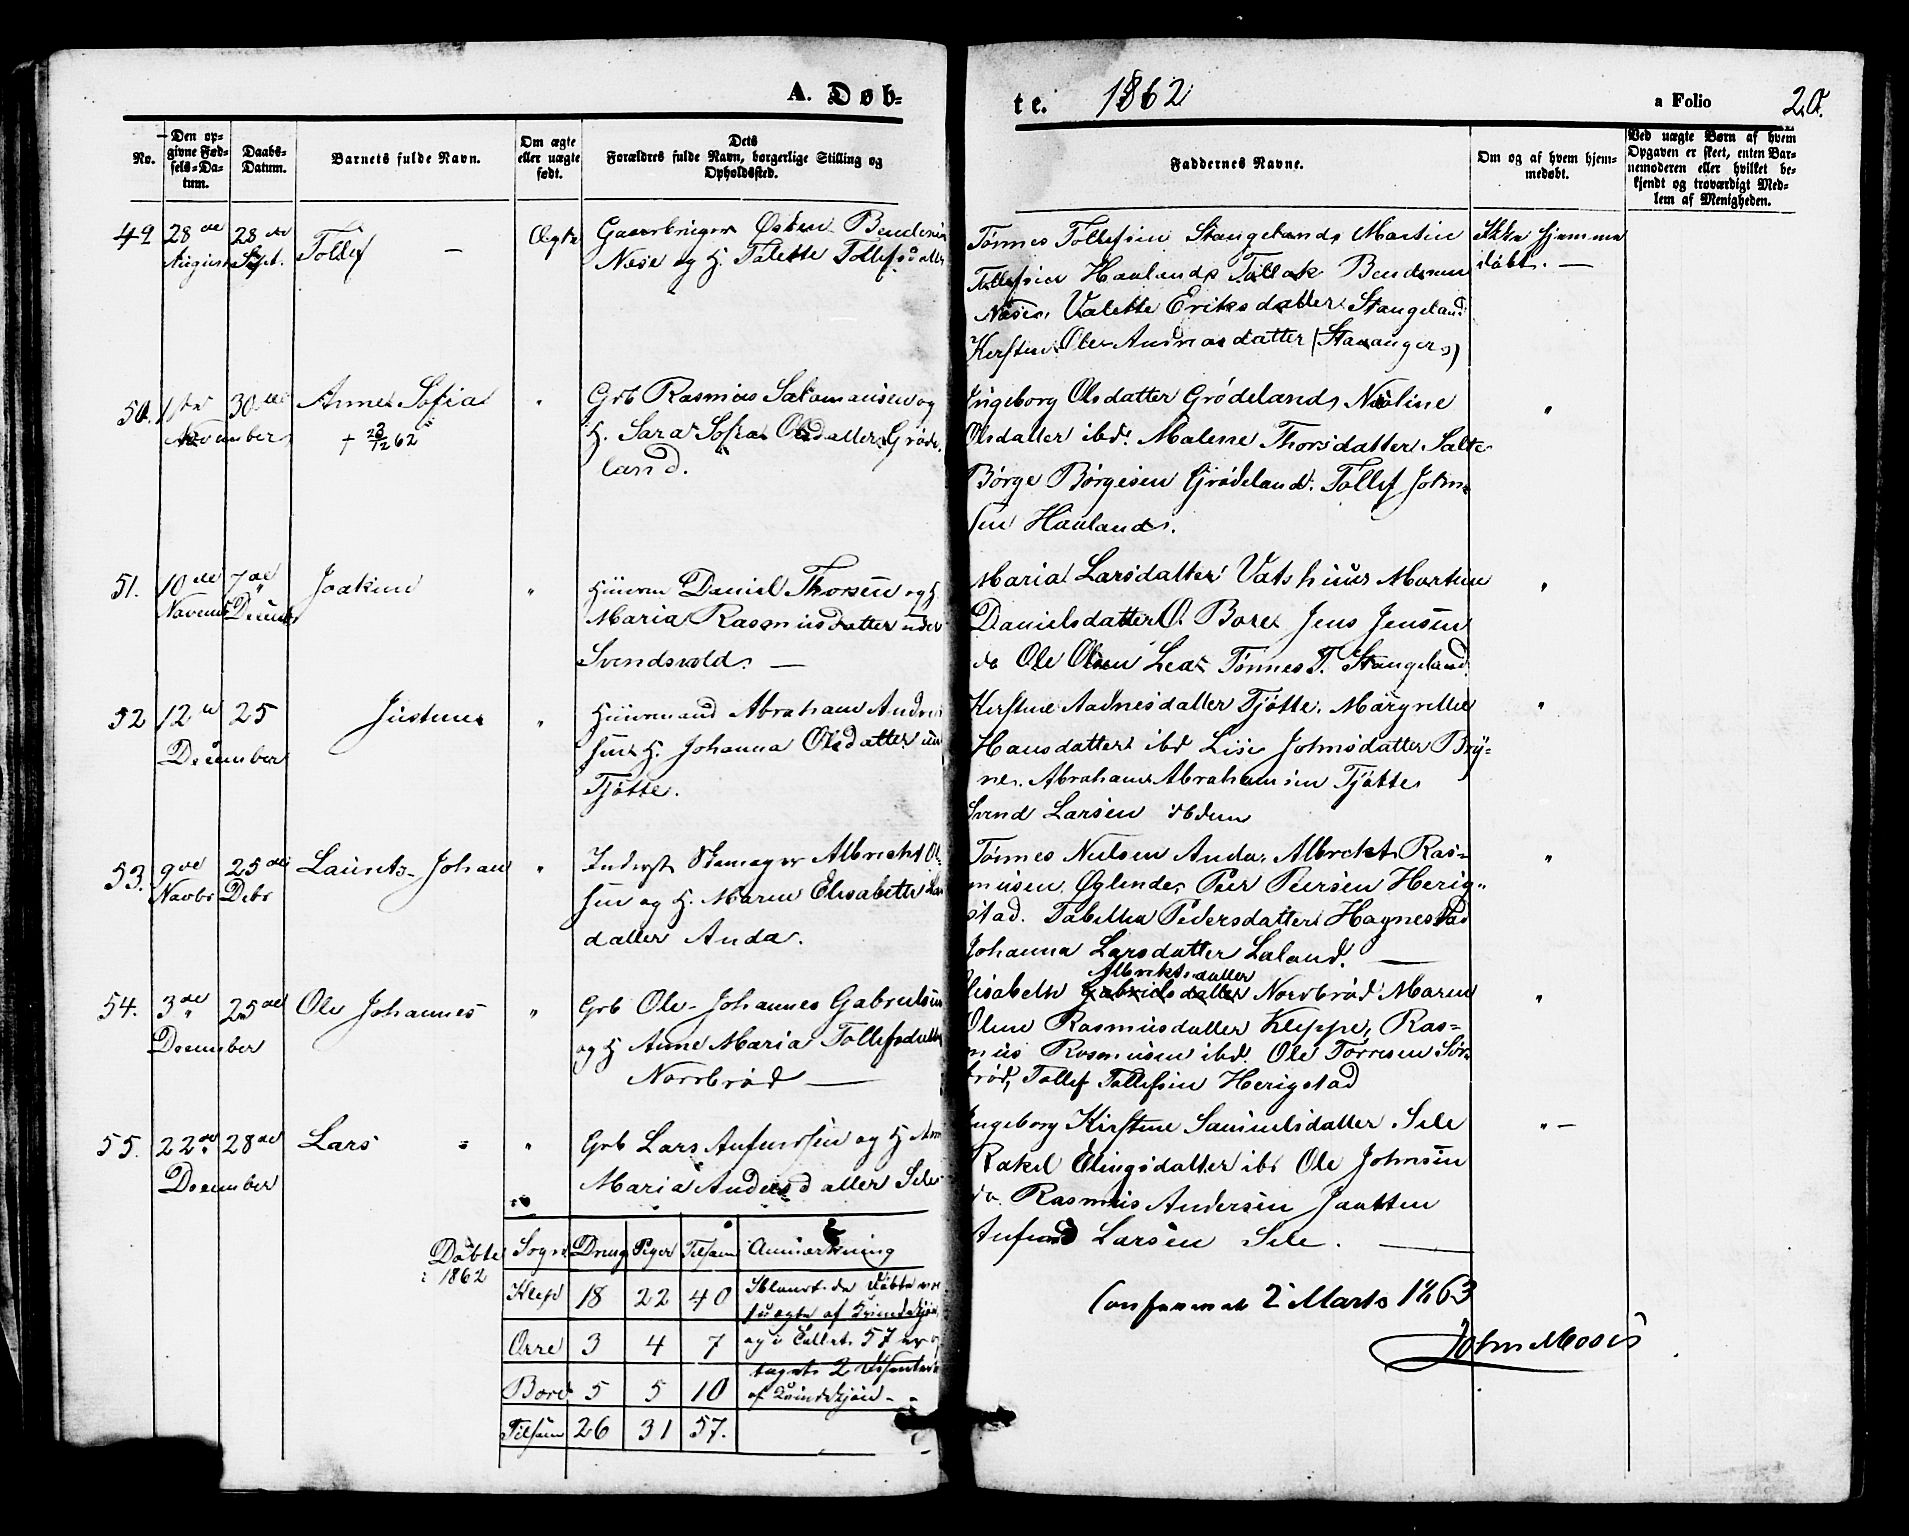 A. Døb-
te. 1862 a Folio 20.
No.
Den op-
givne Fød-
sels-Da-
tum.
Daabs-
Datum.
Barnets fulde Navn.
Om ægte
eller uægte
født.
Dets
Forældres fulde Navn, borgerlige Stilling og
Opholdssted.
Faddernes Navne.
Om og af hvem hjem-
medøbt.
Ved uægte Børn af hvem
Opgaven er skeet, enten Bar-
nemoderen eller hvilket be-
kjendt og troværdigt Med-
lem af Menigheden.
49 28de August 28de Sept. Tollef – Ægte
Gaardbruger Østen Bendixen
Næse og H. Talette Tollefsdatter
Tønnes Tollefsen Stangeland, Martin
Tollefsen Haaland, Tollak Bendixen
Næse, Valette Eriksdatter Stangeland
Kerstine Ole Andreasdatter (Stavanger)
Ikke hjemme
døbt. –
50. 1ste 30te November Anne Sofia "
+ 23/12 62
Grb Rasmus Salamonsen og
H. Sara Sofia Olsdatter Grøde-
land.
Ingeborg Olsdatter Grødeland, Neoline
Olsdatter ibd. Malene Thorsdatter Salte
Børge Børgesen Grødeland. Tollef John-
sen Haaland. "
51. 10de Novembr 7de Decembr Joakim "
Huusm Daniel Thorsen og H.
Maria Rasmusdatter under
Svendsvold. –
Maria Larsdatter Vatshuus Martine
Danielsdatter O. Bore Jens Jensen
do Ole Olsen Lea Tønnes T. Stangeland "
52 12te 25 December Justine "
Huusmand Abraham Andre
sen H. Johanna Olsdatter un
Tjøtte.
Kerstine Aadnesdatter Tjøtte, Margrethe
Hansdatter ibd Lise Johnsdatter Bry-
ne. Abraham Abrahamsen Tjøtte
Svend Larsen ibdem "
53. 9de Novbr 25de Debr Laurits Johan "
Inderst Skomager Albrecht Ol-
sen og H. Maren Elisabeth Lars
datter Anda.
Tønnes Nielsen Anda, Albrekt Ras-
musen Øglende, Peer Peersen Herig-
stad. Tabitha Pedersdatter Hognestad
Johanna Larsdatter Laland. –
"
54. 3de 25de December Ole Johannes "
Grb Ole Johannes Gabrielsen
og H Anne Maria Tollefsdatter
Nordbrød –
Albrektsdatter
Elisabeth Gabrielsdatter Nordbrød Maren
Oline Rasmusdatter Kleppe, Ras-
mus Rasmusen ibd. Ole Torresen Sør-
brød, Tollef Tollefsen Herigstad
"
55. 22de 28de December Lars "
Grb Lars Anfindsen og H Ane
Maria Andersdatter Sele
Ingeborg Kirstine Samuelsdatter Sele
Rakel Elingsdatter ibd Ole Johnsen
do. Rasmus Andersen Jaatten
Anfind Larsen Sele. –
" –
Døbte
i 1862
Sogn Dreng Piger Tilsam Anmærkning
Klep 18 22 40
Orre 3 4 7
Bore 5 5 10
Tilsam 26 31 57.
Iblandt de døbte er
1 uægte af Kvindekjøn
og i Tallet 57 er op
taget 2 Dissentere
af Kvindekjøn –
Confereret 2 Marts 1863
John Moses